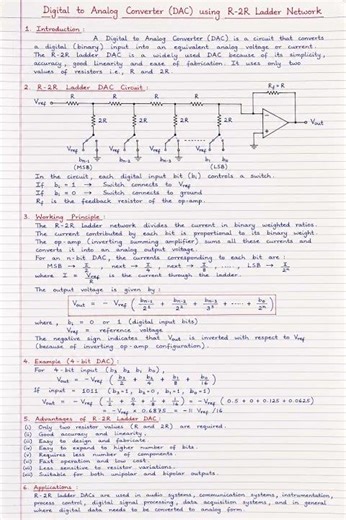 Digital to Analog Converter (DAC) using R-2R Ladder Network
1. Introduction :
A Digital to Analog Converter (DAC) is a circuit that converts
a digital (binary) input into an equivalent analog voltage or current.
The R-2R ladder DAC is a widely used DAC because of its simplicity,
accuracy, good linearity and ease of fabrication. It uses only two
values of resistors i.e., R and 2R.
2. R-2R Ladder DAC Circuit :
Vref R R R R Rf = R
2R 2R 2R 2R Vout
Vref Vref Vref
bn-1 bn-2 bn-3 b1 b0
(MSB) (LSB)
In the circuit, each digital input bit (bi) controls a switch.
If bi = 1 → Switch connects to Vref
If bi = 0 → Switch connects to ground
Rf is the feedback resistor of the op-amp.
3. Working Principle :
The R-2R ladder network divides the current in binary weighted ratios.
The current contributed by each bit is proportional to its binary weight.
The op-amp (inverting summing amplifier) sums all these currents and
converts it into an analog output voltage.
For an n-bit DAC, the currents corresponding to each bit are :
MSB → I/2, next → I/4, next → I/8, ....., LSB → I/2^n
where I = Vref/R is the current through the ladder.
The output voltage is given by :
Vout = - Vref ( bn-1/2^1 + bn-2/2^2 + bn-3/3^3 + ..... + b0/2^n )
where, bi = 0 or 1 (digital input bits)
Vref = reference voltage
The negative sign indicates that Vout is inverted with respect to Vref
(because of inverting op-amp configuration).
4. Example (4-bit DAC) :
For 4-bit input (b3 b2 b1 b0),
Vout = - Vref ( b3/2 + b2/4 + b1/8 + b0/16 )
If input = 1011 (b3=1, b2=0, b1=1, b0=1)
Vout = - Vref ( 1/2 + 0/4 + 1/8 + 1/16 ) = - Vref ( 0.5 + 0 + 0.125 + 0.0625)
= - Vref × 0.6875 = - 11 Vref /16
5. Advantages of R-2R Ladder DAC :
(i) Only two resistor values (R and 2R) are required.
(ii) Good accuracy and linearity.
(iii) Easy to design and fabricate
(iv) Easy to expand to higher number of bits.
(v) Requires less number of components.
(vi) Fast operation and low cost.
(vii) Less sensitive to resistor variations.
(viii) Suitable for both unipolar and bipolar outputs.
6. Applications :
R-2R ladder DACs are used in audio systems, communication systems, instrumentation,
process control, digital signal processing, data acquisition systems, and in general
where digital data needs to be converted to analog form.